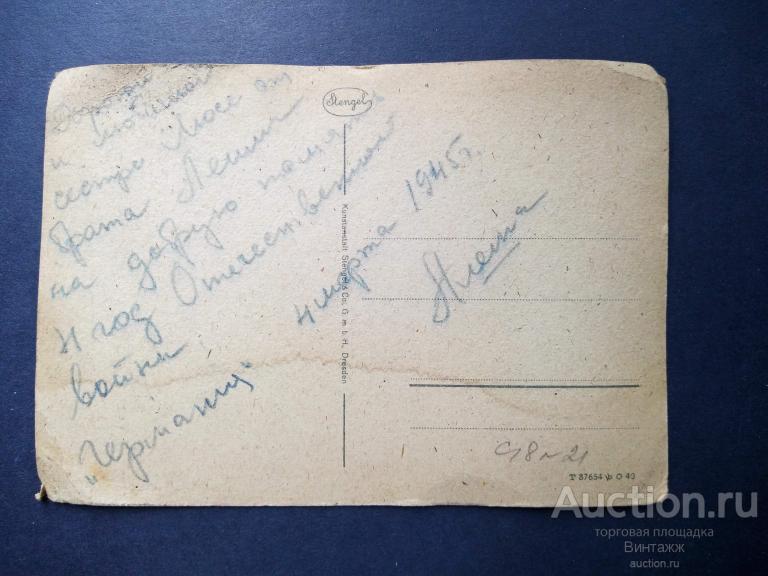 и любимой
сестре Люсе от
брата Леши
на добрую память
4 год Отечественной
войны
4 марта 1945 г.
"Германия"
Stengel
Kunstanstalt Stengel & Co., G. m. b. H., Dresden
Алеша
T 87654 O 40
Auction.ru
торговая площадка
Винтажж
auction.ru